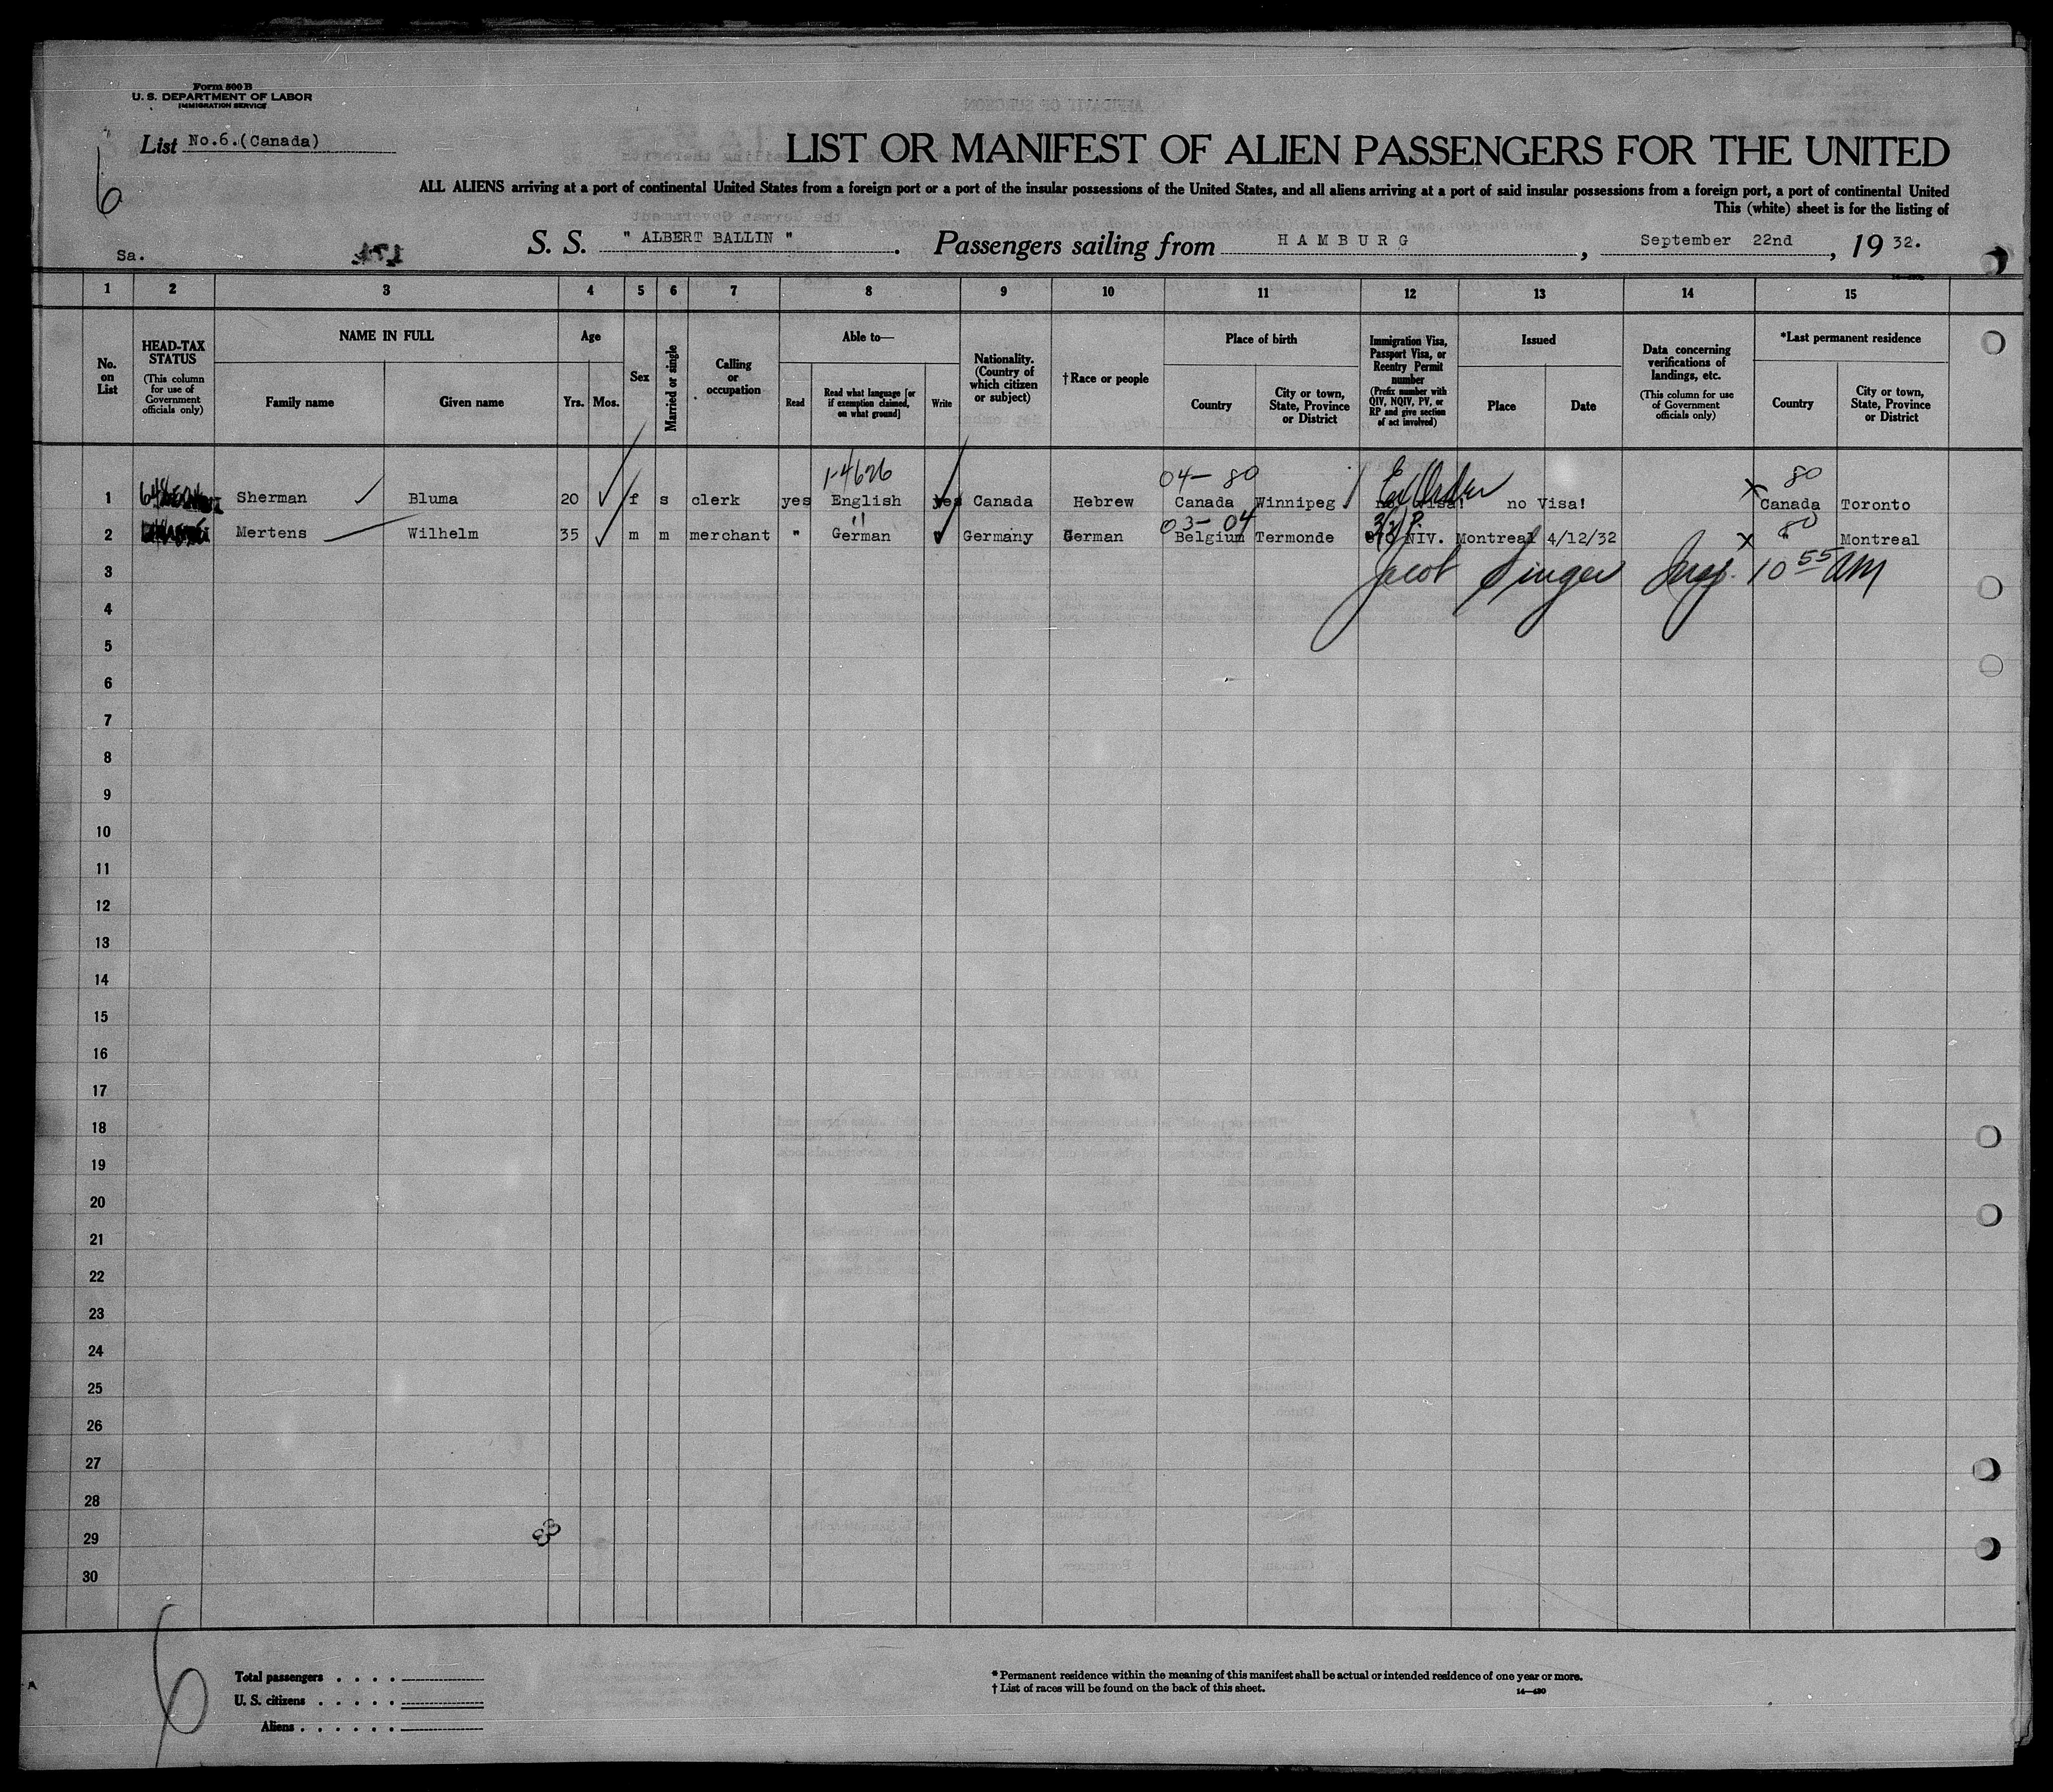 Form 500 B
U. S. DEPARTMENT OF LABOR
IMMIGRATION SERVICE
List No.6.(Canada)
6
LIST OR MANIFEST OF ALIEN PASSENGERS FOR THE UNITED
ALL ALIENS arriving at a port of continental United States from a foreign port or a port of the insular possessions of the United States, and all aliens arriving at a port of said insular possessions from a foreign port, a port of continental United
This (white) sheet is for the listing of
Sa.
S. S. " ALBERT BALLIN " . Passengers sailing from HAMBURG , September 22nd , 19 32.
1 2 3 4 5 6 7 8 9 10 11 12 13 14 15
No. on List
HEAD-TAX STATUS (This column for use of Government officials only)
NAME IN FULL
Family name Given name
Age
Yrs. Mos.
Sex
Married or single
Calling or occupation
Able to—
Read
Read what language [or if exemption claimed, on what ground]
Write
Nationality. (Country of which citizen or subject)
†Race or people
Place of birth
Country
City or town, State, Province or District
Immigration Visa, Passport Visa, or Reentry Permit number (Prefix number with QIV, NQIV, PV, or RP and give section of act involved)
Issued
Place Date
Data concerning verifications of landings, etc. (This column for use of Government officials only)
*Last permanent residence
Country
City or town, State, Province or District
1-4626 04— 80 80
1 Sherman Bluma 20 f s clerk yes English yes Canada Hebrew Canada Winnipeg no Visa! Canada Toronto
03— 04 80
2 Mertens Wilhelm 35 m m merchant " German Germany German Belgium Termonde NIV. Montreal 4/12/32 Montreal
3 Jacob Singer Insp. 10 55 AM
4
5
6
7
8
9
10
11
12
13
14
15
16
17
18
19
20
21
22
23
24
25
26
27
28
29
30
6
Total passengers . . . .
U. S. citizens . . . . .
Aliens . . . . . .
* Permanent residence within the meaning of this manifest shall be actual or intended residence of one year or more.
† List of races will be found on the back of this sheet.
14—430